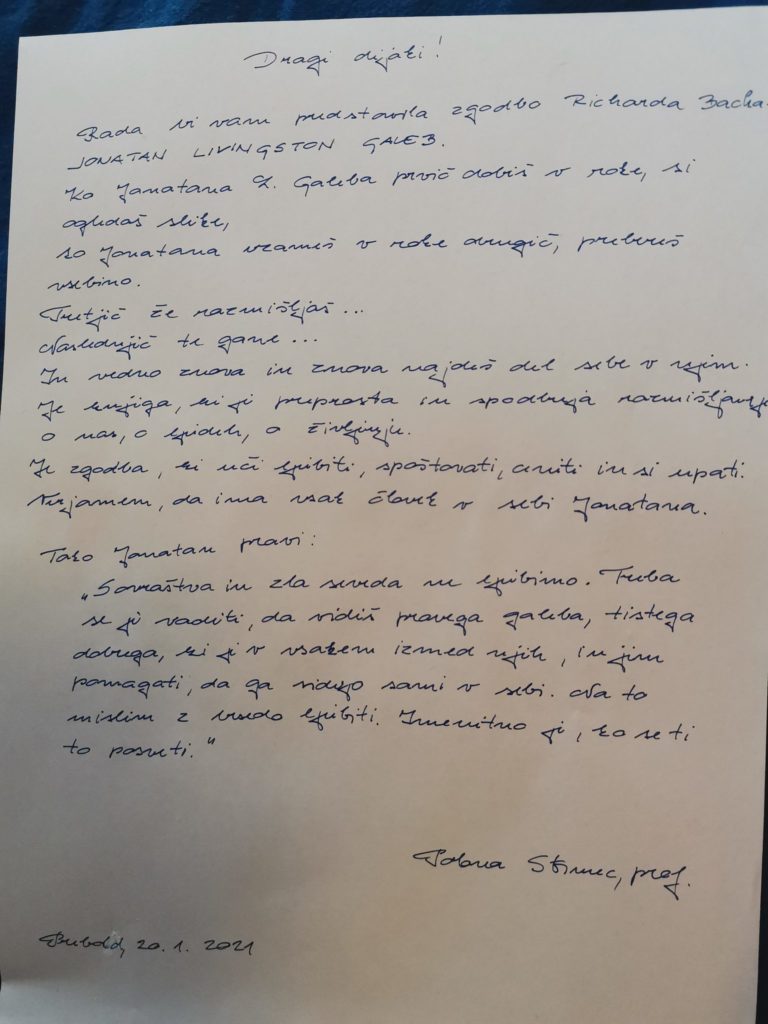 Dragi dijaki!
Rada bi vam predstavila zgodbo Richarda Bacha
JONATAN LIVINGSTON GALEB.
Ko Jonatana L. Galeba prvič dobiš v roke, si
ogledaš slike,
ko Jonatana vzameš v roke drugič, prebereš
vsebino.
Tretjič že razmišljaš...
Naslednjič te gane...
In vedno znova in znova najdeš del sebe v njem.
Je knjiga, ki je preprosta in spodbuja razmišljanje
o nas, o ljudeh, o življenju.
Je zgodba, ki uči ljubiti, spoštovati, ceniti in si upati.
Verjamem, da ima vsak človek v sebi Jonatana.
Tako Jonatan pravi:
„Sovraštva in zla seveda ne ljubimo. Treba
se je vaditi, da vidiš pravega galeba, tistega
dobrega, ki je v vsakem izmed njih, in jim
pomagati, da ga vidijo sami v sebi. Na to
mislim z besedo ljubiti. Imenitno je, ko se ti
to posveti."
prof.
20.1. 2021